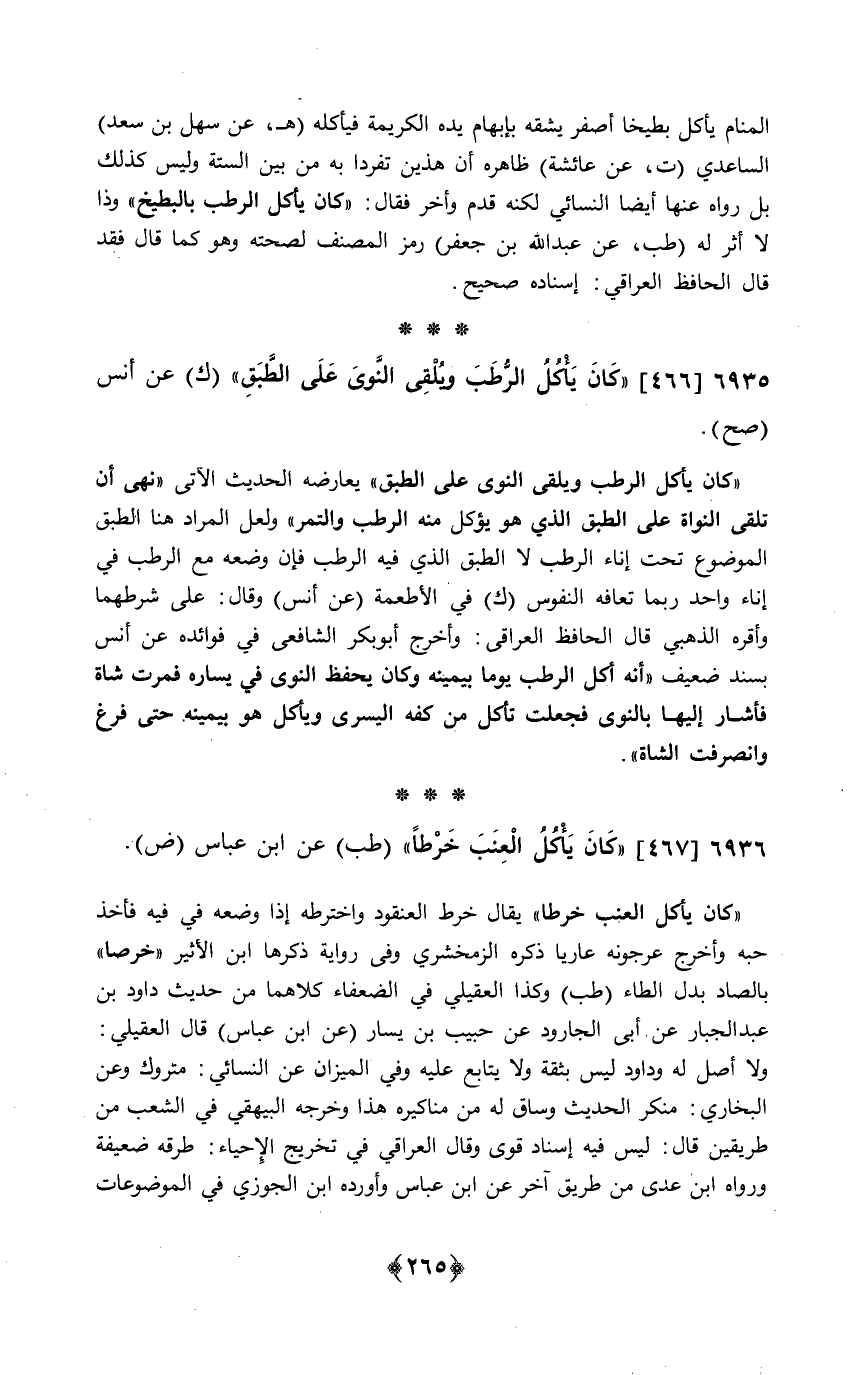 المنام يأكل بطيخا أصفر يشقه بإبهام يده الكريمة فيأكله (هـ، عن سهل بن سعد)
الساعدي (ت، عن عائشة) ظاهره أن هذين تفردا به من بين الستة وليس كذلك
بل رواه عنها أيضا النسائي لكنه قدم وأخر فقال: «كان يأكل الرطب بالبطيخ» وذا
لا أثر له (طب، عن عبدالله بن جعفر) رمز المصنف لصحته وهو كما قال فقد
قال الحافظ العراقي: إسناده صحيح.
* * *
٦٩٣٥ [٤٦٦] «كَانَ يَأْكُلُ الرُّطَبَ ويُلْقِى النَّوىَ عَلَى الطَّبَقِ» (ك) عن أنس
(صح).
«كان يأكل الرطب ويلقى النوى على الطبق» يعارضه الحديث الآتى «نهى أن
تلقى النواة على الطبق الذي هو يؤكل منه الرطب والتمر» ولعل المراد هنا الطبق
الموضوع تحت إناء الرطب لا الطبق الذي فيه الرطب فإن وضعه مع الرطب في
إناء واحد ربما تعافه النفوس (ك) في الأطعمة (عن أنس) وقال: على شرطهما
وأقره الذهبي قال الحافظ العراقى: وأخرج أبوبكر الشافعى في فوائده عن أنس
بسند ضعيف «أنه أكل الرطب يوما بيمينه وكان يحفظ النوى في يساره فمرت شاة
فأشار إليها بالنوى فجعلت تأكل من كفه اليسرى ويأكل هو بيمينه حتى فرغ
وانصرفت الشاة».
* * *
٦٩٣٦ [٤٦٧] «كَانَ يَأْكُلُ الْعِنَبَ خَرْطاً» (طب) عن ابن عباس (ض).
«كان يأكل العنب خرطا» يقال خرط العنقود واخترطه إذا وضعه في فيه فأخذ
حبه وأخرج عرجونه عاريا ذكره الزمخشري وفى رواية ذكرها ابن الأثير «خرصا»
بالصاد بدل الطاء (طب) وكذا العقيلي في الضعفاء كلاهما من حديث داود بن
عبدالجبار عن أبى الجارود عن حبيب بن يسار (عن ابن عباس) قال العقيلي:
ولا أصل له وداود ليس بثقة ولا يتابع عليه وفي الميزان عن النسائي: متروك وعن
البخاري: منكر الحديث وساق له من مناكيره هذا وخرجه البيهقي في الشعب من
طريقين قال: ليس فيه إسناد قوى وقال العراقي في تخريج الإحياء: طرقه ضعيفة
ورواه ابن عدى من طريق آخر عن ابن عباس وأورده ابن الجوزي في الموضوعات
﴿٢٦٥﴾